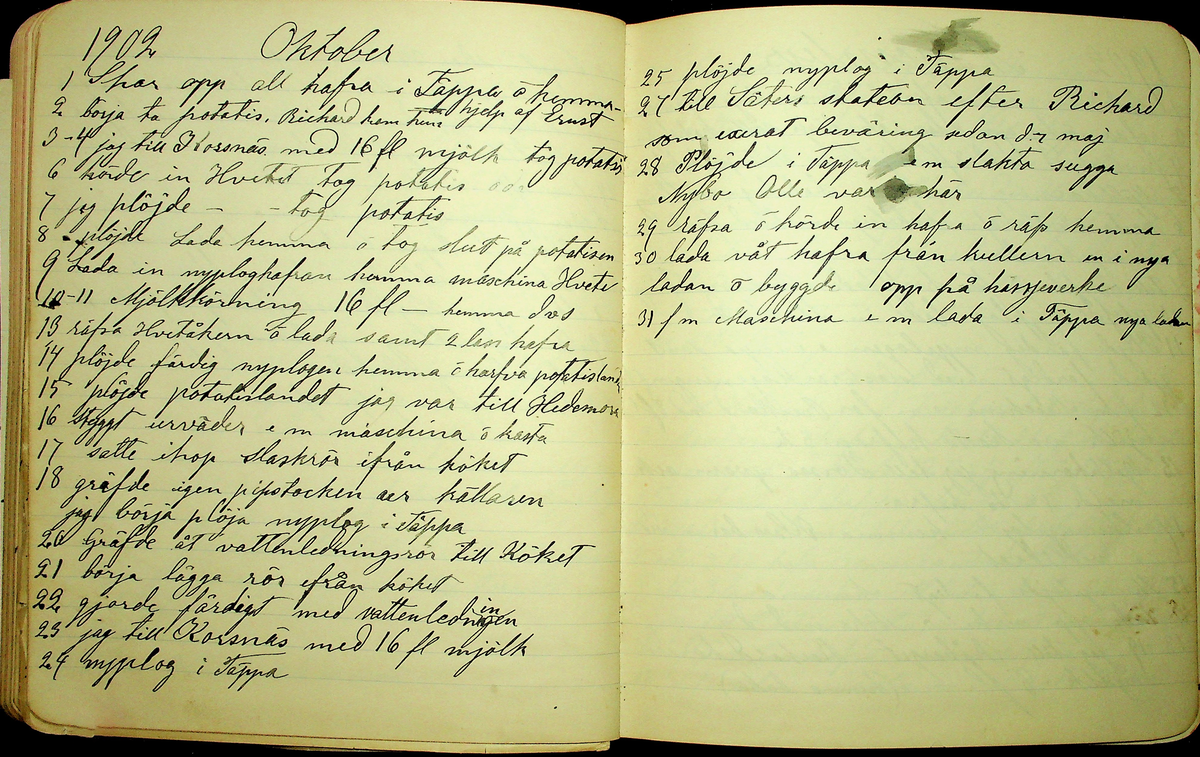 1902 Oktober
1 Skar opp all hafra i Täppa ö hemma
2 börja ta potatis. Richard kom hem hjelp af Ernst
3-4 jag till Korsnäs med 16 fl mjölk tog potatis
6 körde in Hvetet tog potatis
7 jag plöjde - - tog potatis
8 - plöjde Lada hemma ö tog slut på potatisen
9 Lada in nyploghafran hemma maschina Hvete
10-11 Mjölkkörning 16 fl - hemma dvs
13 räfsa Hvetåkern ö lada samt 2 lass hafra
14 plöjde färdig nyplogen hemma ö harfva potatisland
15 plöjde potatislandet jag var till Hedemora
16 styggt urväder e m maschina ö kasta
17 satte ihop slaskrör ifrån köket
18 gräfde igen pipstocken äer källaren
jag börja plöja nyplog i Täppa
20 Gräfde åt vattenledningsrör till Köket
21 börja lägga rör ifrån köket
22 gjorde färdigt med vattenledningen
23 jag till Korsnäs med 16 fl mjölk
24 nyplog i Täppa
25 plöjde nyplog i Täppa
27 till Säters station efter Richard
som exerat beväring sedan d 7 maj
28 Plöjde i Täppa em slakta sugga
Nybo Olle var här
29 räfsa ö körde in hafra ö räfs hemma
30 lada våt hafra från kullern en i nya
ladan ö byggde opp på hässjeverke
31 f m Maschina e m lada i Täppa nya ladan